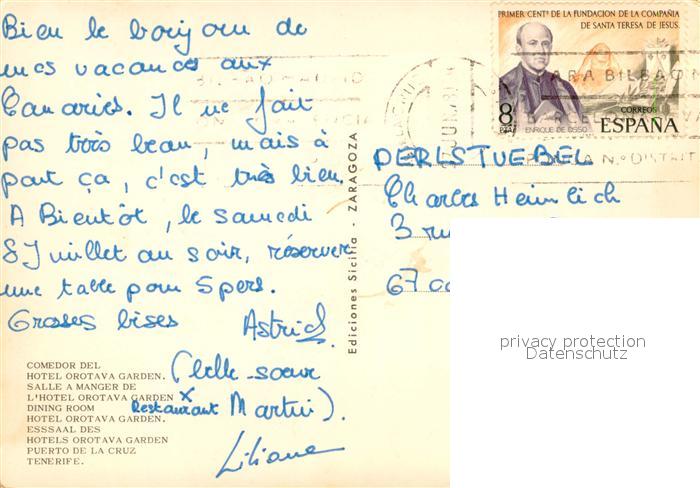 Bien le bonjour de
mes vacances aux
Canaries. Il ne fait
pas très beau, mais à
part ça, c'est très bien.
A Bientôt, le samedi
8 Juillet au soir, réserver
une table pour 5 pers.
Grosses bises Astrid
(belle-soeur
x Restaurant Martin).
Liliane
COMEDOR DEL
HOTEL OROTAVA GARDEN.
SALLE A MANGER DE
L'HOTEL OROTAVA GARDEN
DINING ROOM
HOTEL OROTAVA GARDEN.
ESSSAAL DES
HOTELS OROTAVA GARDEN
PUERTO DE LA CRUZ
TENERIFE.
Ediciones Sicilia - ZARAGOZA
PRIMER CENTº DE LA FUNDACION DE LA COMPAÑIA
DE SANTA TERESA DE JESUS.
8 PTAS
ENRIQUE DE OSSO
CORREOS
ESPAÑA
PARA BILBAO
Nº DISTRIT
DERLSTUEBEL
Charles Heinrich
3 ru
67
privacy protection
Datenschutz